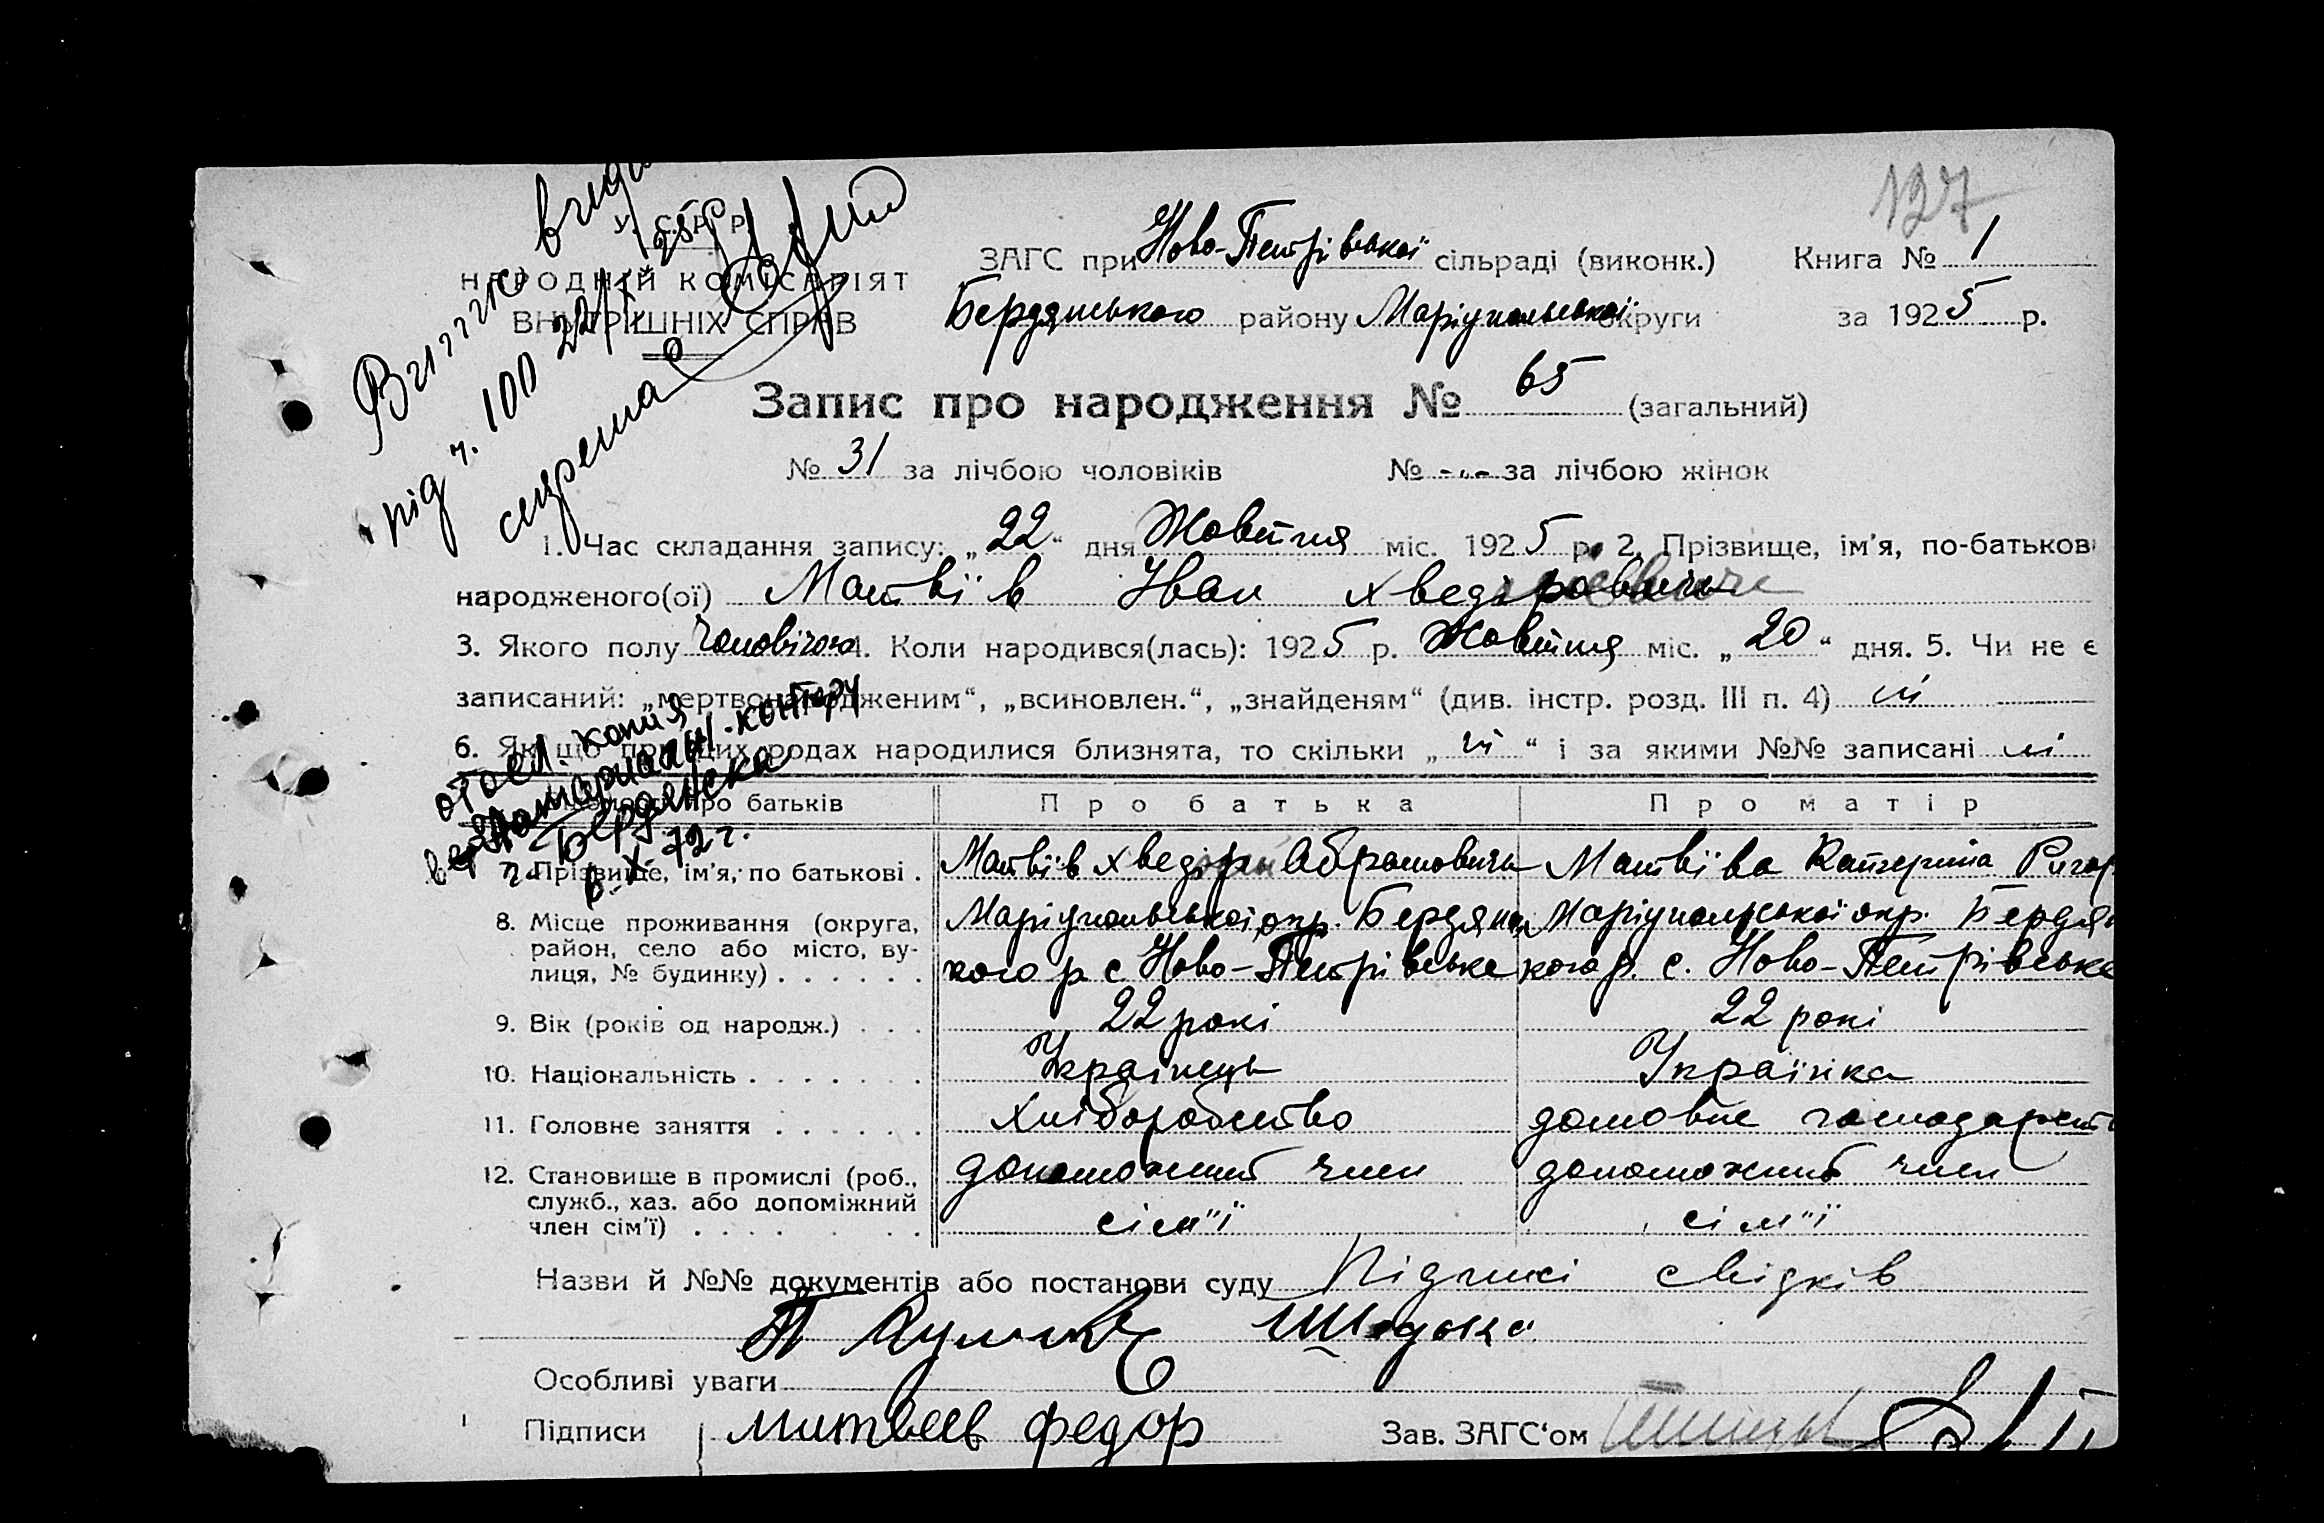 127
У. С. Р. Р.
НАРОДНІЙ КОМІСАРІЯТ
ВНУТРІШНІХ СПРАВ
ЗАГС при Ново-Петрівської сільраді (виконк.) Книга № 1
Бердянського району Маріупольської округи за 1925 р.
під ч. 100 22/
Запис про народження № 65 (загальний)
№ 31 за лічбою чоловіків № -"- за лічбою жінок
1. Час складання запису: „22“ дня Жовтня міс. 1925 р. 2. Прізвище, ім'я, по-батькові
народженого(ої) Матвіїв Іван Хведіровичь
3. Якого полу чоловічого 4. Коли народився(лась): 1925 р. Жовтня міс. „20“ дня. 5. Чи не є
записаний: „мертвонародженим“, „всиновлен.“, „знайденям“ (див. інстр. розд. III п. 4) ні
6. Якщо при цих родах народилися близнята, то скільки „ні“ і за якими №№ записані ні
копия
нотариальн. контору
Бердянска
6-X-72 г.
про батьків Про батька Про матір
7. Прізвище, ім'я, по батькові . Матвіїв Хведір Абрамовичь Матвіїва Катерина Ригор
8. Місце проживання (округа, Маріупольської окр. Бердянсь Маріупольської окр. Бердян
район, село або місто, ву-
лиця, № будинку) . . . . . . кого р с Ново-Петрівське кого р. с. Ново-Петрівське
9. Вік (років од народж.) . . . 22 рокі 22 рокі
10. Національність . . . . . . . Українець Українка
11. Головне заняття . . . . . . Хліборобство домовне господарст
12. Становище в промислі (роб., допоможний член допоможний член
служб., хаз. або допоміжний
член сім'ї) . . . . . . . сім"ї сім"ї
Назви й №№ документів або постанови суду Підписі свідків
Особливі уваги
Підписи Митвеев Федор Зав. ЗАГС'ом